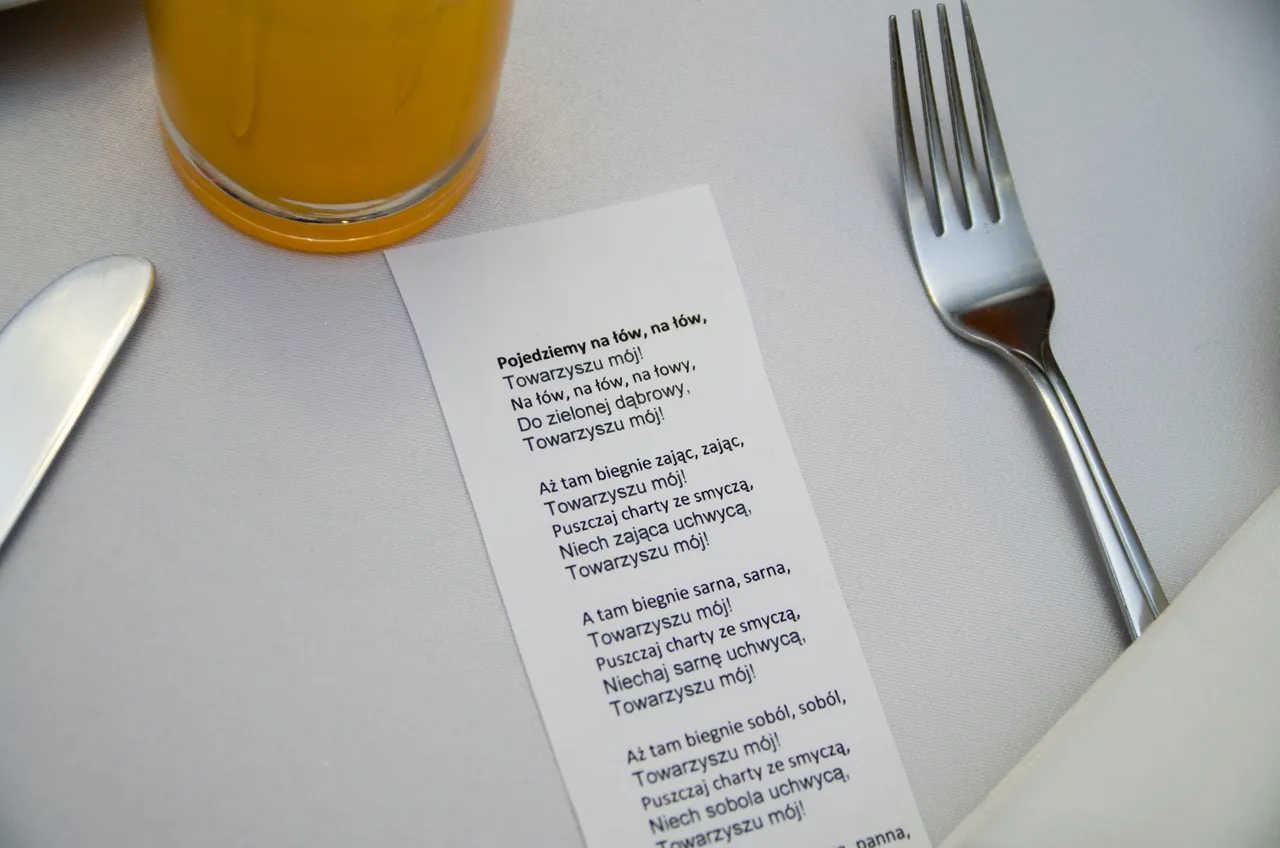 Pojedziemy na łów, na łów,
Towarzyszu mój!
Na łów, na łów, na łowy,
Do zielonej dąbrowy,
Towarzyszu mój!
Aż tam biegnie zając, zając,
Towarzyszu mój!
Puszczaj charty ze smyczą,
Niech zająca uchwycą,
Towarzyszu mój!
A tam biegnie sarna, sarna,
Towarzyszu mój!
Puszczaj charty ze smyczą,
Niechaj sarnę uchwycą,
Towarzyszu mój!
Aż tam biegnie soból, soból,
Towarzyszu mój!
Puszczaj charty ze smyczą,
Niech sobola uchwycą,
Towarzyszu mój!
panna,